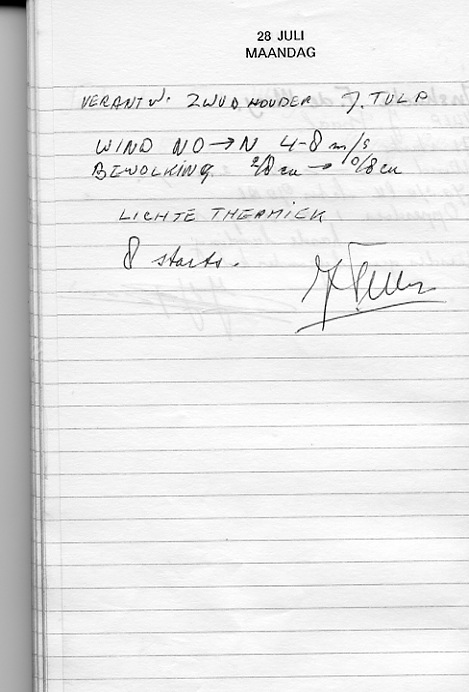 28 JULI
MAANDAG
VERANTW. ZWVDHOUDER J. TULP
WIND NO→N 4-8 m/s
BEWOLKING 2/8 cu → 0/8 cu
LICHTE THERMIEK
8 starts.